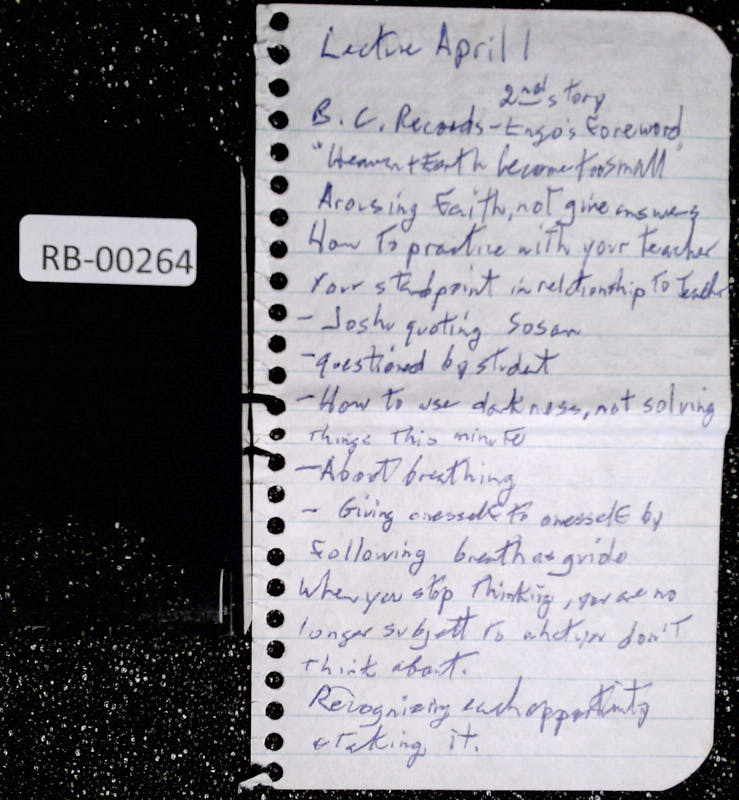 RB-00264
Lecture April 1
2nd story
B. C. Records - Engo's Foreword
"Heaven + Earth become too small"
Arousing Faith, not give answers
How to practice with your teacher
Your standpoint in relationship to teacher
- Joshu quoting Sosan
- questioned by student
- How to use darkness, not solving
things this minute
- About breathing
- Giving onesself to onesself by
Following breath as guide
When you stop thinking, you are no
longer subjett to what you don't
think about.
Recognizing each opportunity
& taking it.